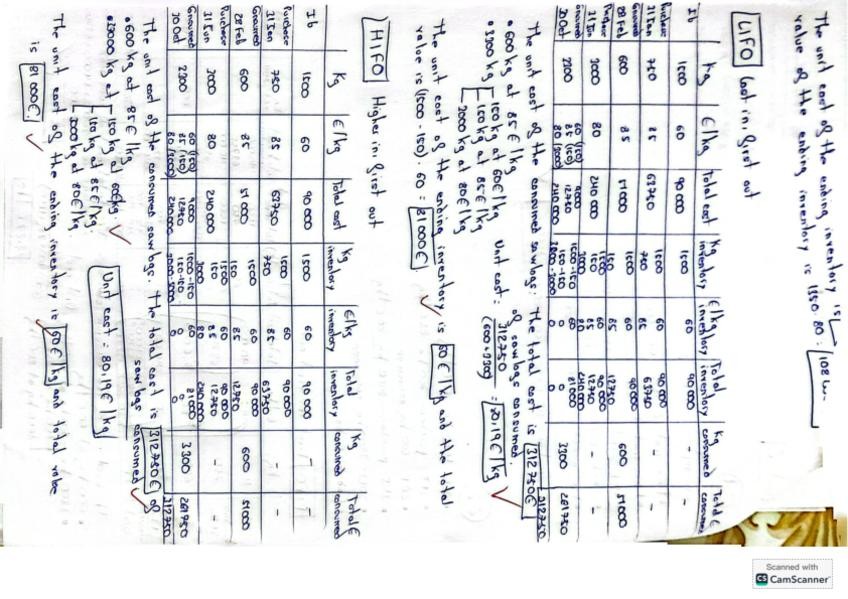 The unit cost of the ending inventory is
value of the ending inventory is 1350 · 80 =
LIFO Last in first out
Kg €/kg Total cost Kg inventory €/kg inventory Total inventory Kg consumed Total € consumed
Ib 1500 60 90 000 1500 60 90 000 - -
Purchase 31 Jan 750 85 63750 1500 60 90 000 - -
750 85 63750
Consumed 28 Feb 600 85 51 000 1500 60 90 000 600 51000
150 85 12750
Purchase 31 Jun 3000 80 240 000 1500 60 90 000 - -
150 85 12750
3000 80 240000
Consumed 30 Oct 3300 60 (150) 9000 1500-150 60 81000 3300 261750
85 (150) 12750 150-150 0 0
80 (3000) 240 000 3000-3000 0 0
312750
The unit cost of the consumed sawbags: The total cost is 312750€
of sawbags consumed.
• 600 kg at 85€/kg
• 3300 kg 150 kg at 60€/kg
150 kg at 85€/kg
3000 kg at 80€/kg
Unit cost: 312750 / (600+3300) = 80,19€/kg
The unit cost of the ending inventory is 60€/kg and the total
value is (1500-150) · 60 = 81000€
HIFO Higher in first out
Kg €/kg Total cost Kg inventory €/kg inventory Total inventory Kg consumed Total € consumed
Ib 1500 60 90 000 1500 60 90 000 - -
Purchase 31 Jan 750 85 63750 1500 60 90 000 - -
750 85 63750
Consumed 28 Feb 600 85 51 000 1500 60 90 000 600 51000
150 85 12750
Purchase 31 Jun 3000 80 240 000 1500 60 90 000 - -
150 85 12750
3000 80 240 000
Consumed 30 Oct 3300 60 (150) 9000 1500-150 60 81000 3300 261750
85 (150) 12750 150-150 0 0
80 (3000) 240000 3000-3000 0 0
312750
The unit cost of the consumed sawbags. The total cost is 312750€ of
sawbags consumed
• 600 kg at 85€/kg
• 3300 kg at 150 kg at 60€/kg.
150 kg at 85€/kg.
3000 kg at 80€/kg
Unit cost = 80,19€/kg
The unit cost of the ending inventory is 60€/kg and total value
is 81 000€.
Scanned with
CS CamScanner